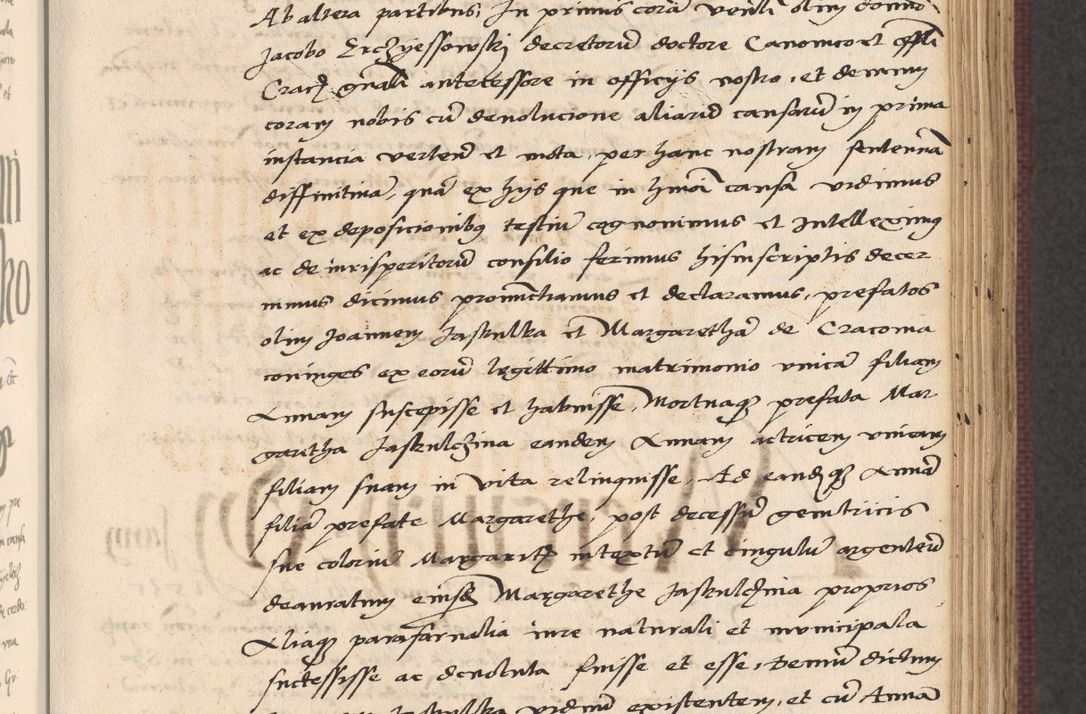 Ab altera partibus, In primis corã veñli olim domño
Jacobo Erczÿessowski decretorũ doctore Canonico et offli
Crac̃ gñali antecessore in officÿs nostro, et demum
coram nobis cũ deuolucione aliarũ causarũ in prima
instancia vertent̃ et mota, per hanc nostram sententiã
diffinitiuã, quã ex hÿs que in hm̃oi causa vidimus
et ex deposicionibus testiũ cognouimus et Intelleximus
ac de iurisperitorũ consilio ferimus his in scriptis decer
nimus dicimus pronũctiamus et declaramus, prefatos
olim Joannem Jaskulka et Margarethã de Cracouia
coniuges ex eorũ legittimo matrimonio vnicã filiam
Annam suscepisse et habuisse, Mortuaq̃ prefata Mar
garetha Jaskulczina eandem Annam actricem vnicam
filiam suam in vita relinquisse, Ad eandẽq̃ Annã
filiã prefate Margarethe, post decessũ genitricis
sue coloriũ Margarit̃ intextũ et cingulũ argenteũ
deauratum eiusd̃ Margarethe Jaskulczina proprios
Aliaq̃ parafarnalia iure naturali et municipala
successisse ac deuoluta fuisse et esse, Demũ dictum
Jaskulka viduũ existentem, et cũ Annã